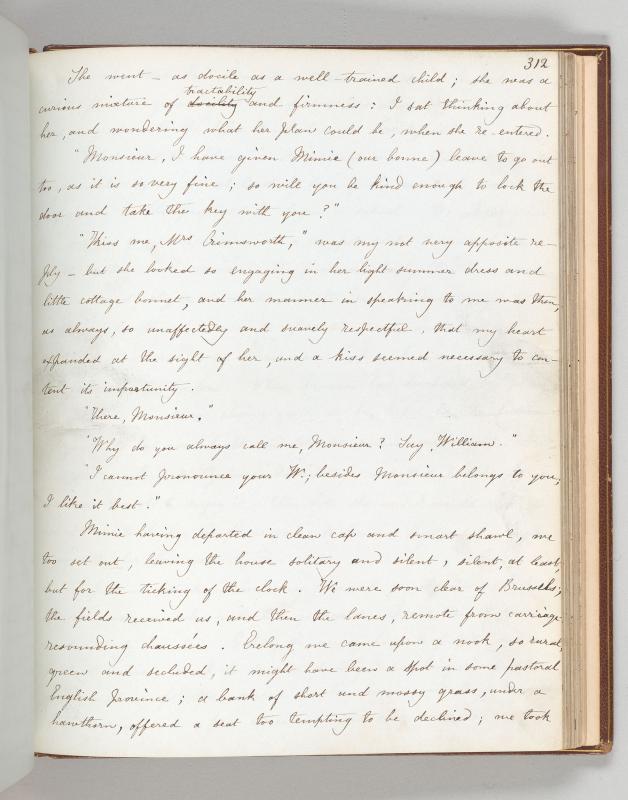 312
She went – as docile as a well-trained child; she was a
tractability
curious mixture of docility and firmness: I sat thinking about
her, and wondering what her plan could be, when she re-entered.
"Monsieur, I have given Mimie (our bonne) leave to go out
too, as it is so very fine; so will you be kind enough to lock the
door and take the key with you?"
"Kiss me, Mrs Crimsworth," was my not very apposite re-
ply – but she looked so engaging in her light summer dress and
little cottage bonnet, and her manner in speaking to me was then,
as always, so unaffectedly and suavely respectful, that my heart
expanded at the sight of her, and a kiss seemed necessary to con-
tent its importunity.
"There, Monsieur."
"Why do you always call me, Monsieur? Say, William."
"I cannot pronounce your W.; besides Monsieur belongs to you;
I like it best."
Mimie having departed in clean cap and smart shawl, we
too set out, leaving the house solitary and silent, silent, at least,
but for the ticking of the clock. We were soon clear of Brussels;
the fields received us, and then the lanes, remote from carriage-
resounding chaussées. Erelong we came upon a nook, so rural,
green and secluded, it might have been a spot in some pastoral
English Province; a bank of short and mossy grass, under a
hawthorn, offered a seat too tempting to be declined; we took